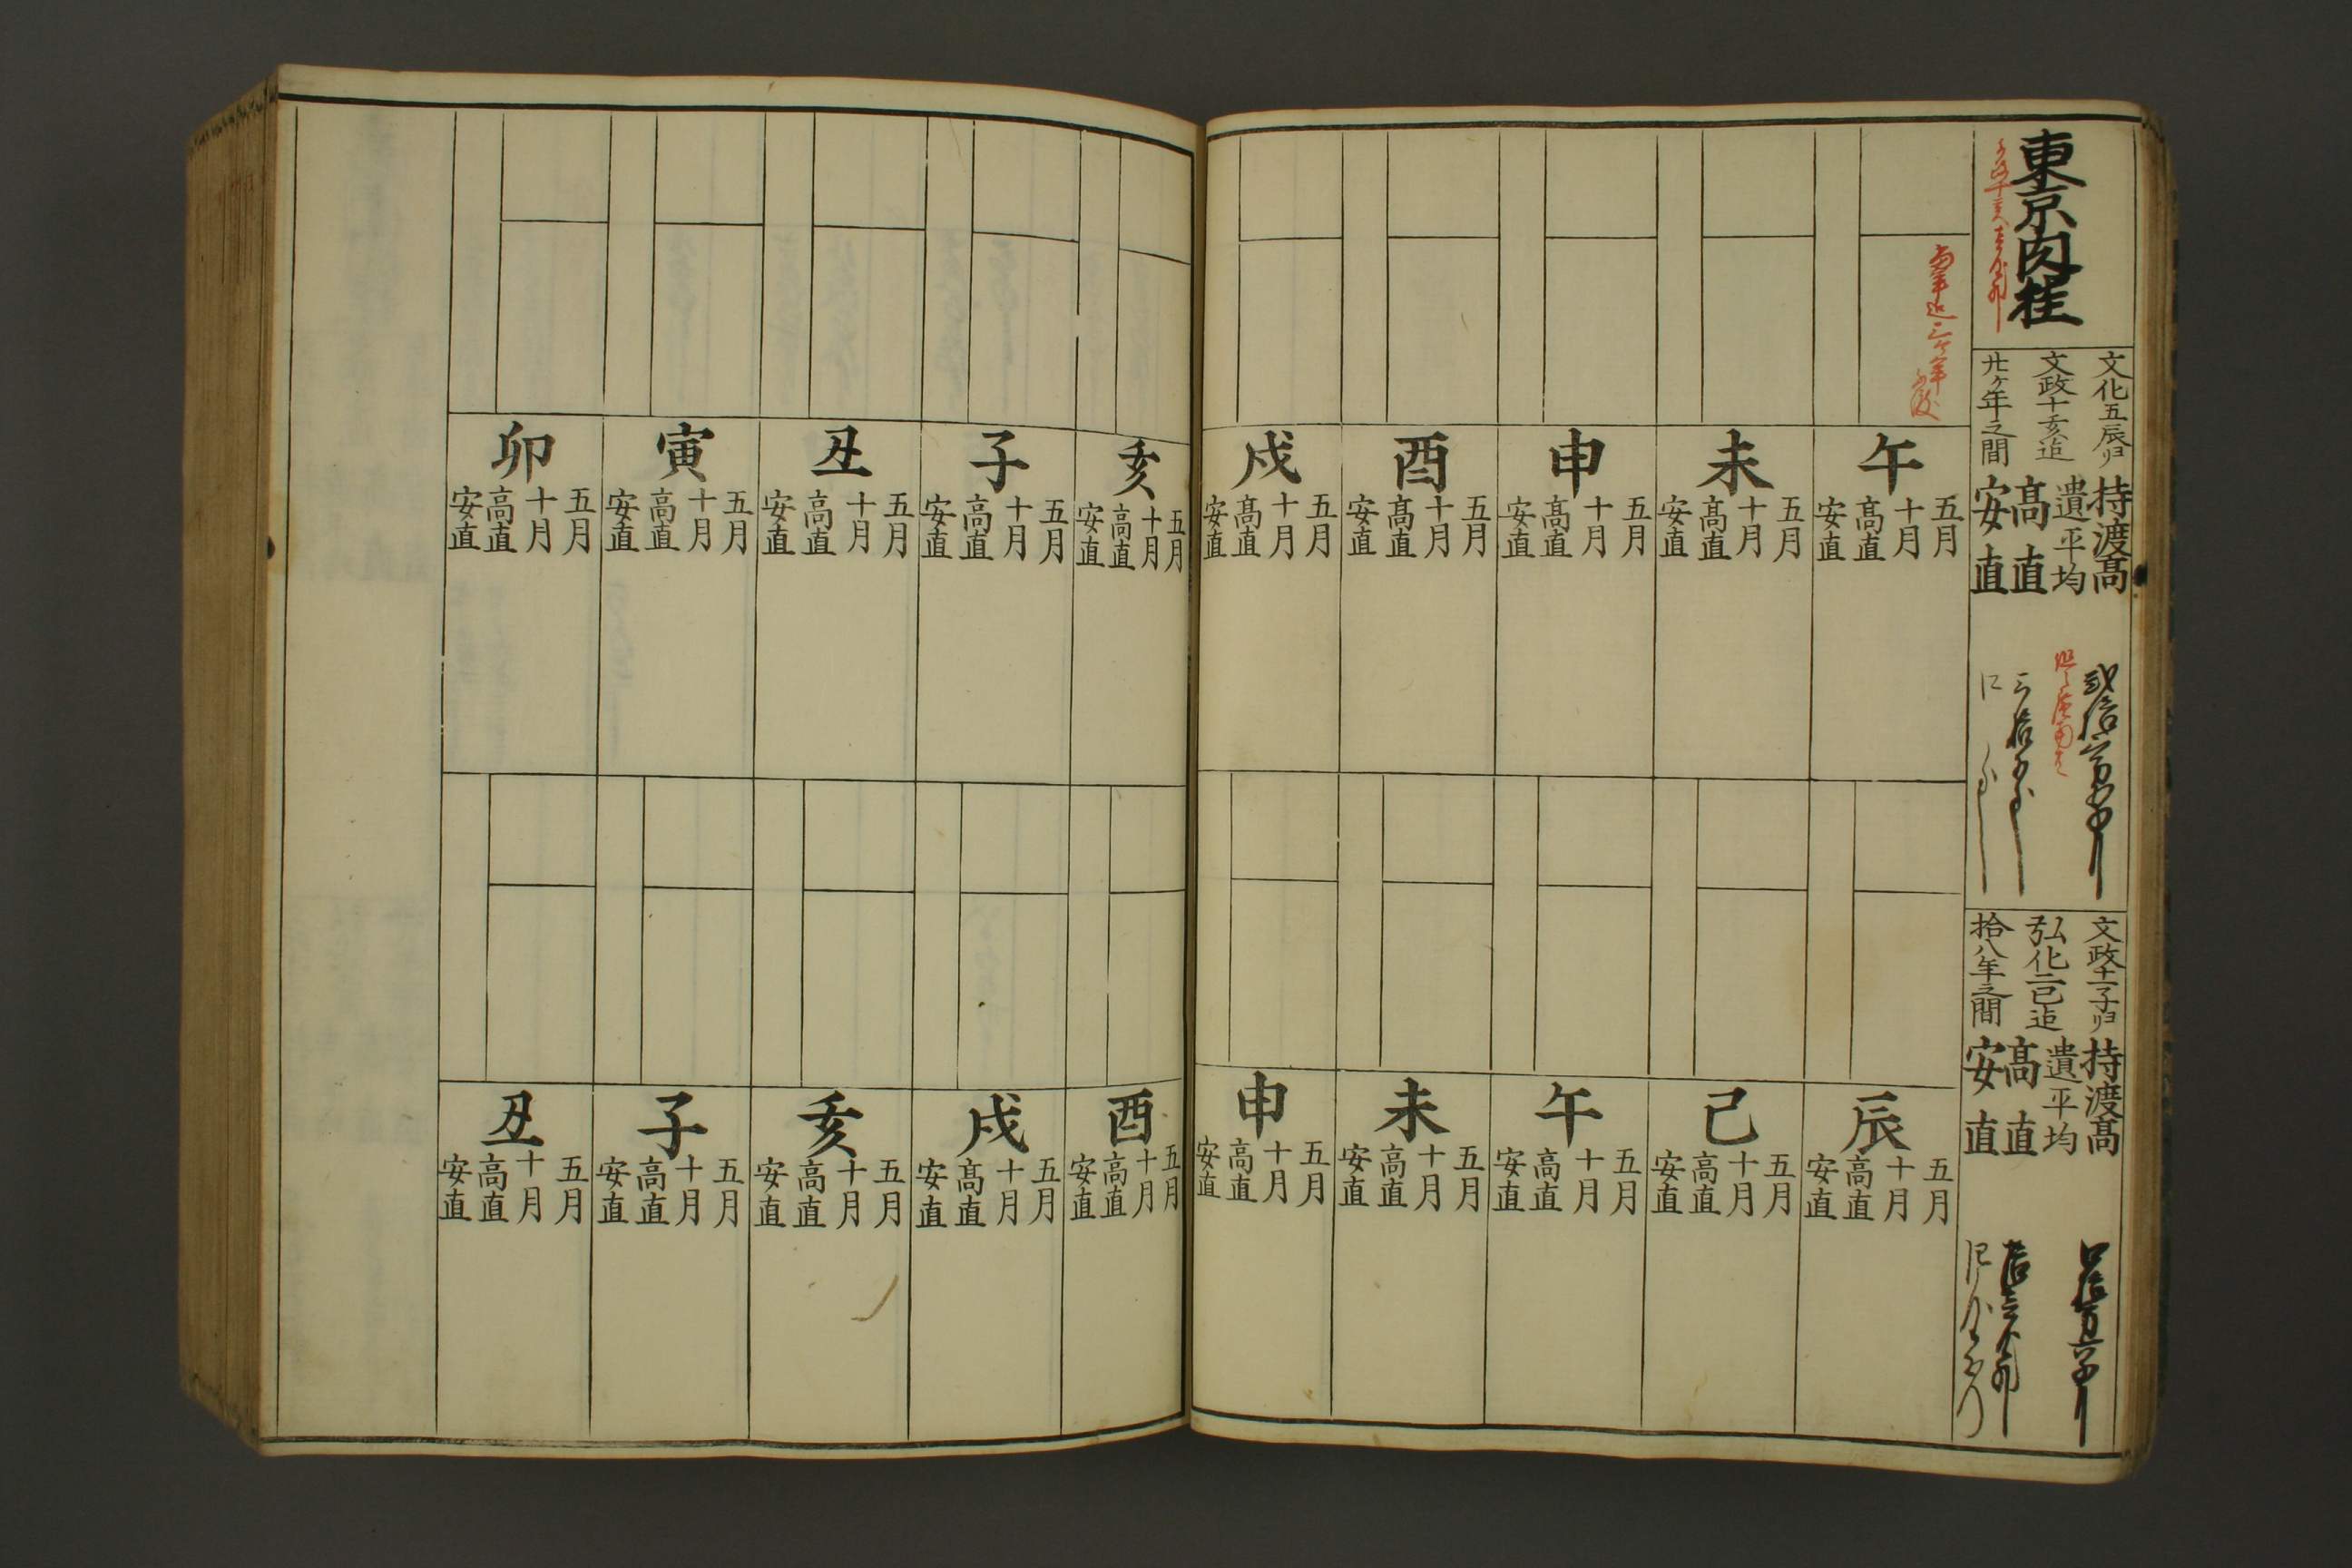 東京肉桂
文化五辰ゟ
文政十亥迄
廿ヶ年之間
持渡髙
遺平均
髙直
安直
文政十一子ゟ
弘化二巳迄
拾八年之間
持渡髙
遺平均
髙直
安直
午
五月
十月
髙直
安直
未
五月
十月
髙直
安直
申
五月
十月
髙直
安直
酉
五月
十月
髙直
安直
戌
五月
十月
髙直
安直
辰
五月
十月
髙直
安直
己
五月
十月
髙直
安直
午
五月
十月
髙直
安直
未
五月
十月
髙直
安直
申
五月
十月
髙直
安直
亥
五月
十月
髙直
安直
子
五月
十月
髙直
安直
丑
五月
十月
髙直
安直
寅
五月
十月
髙直
安直
卯
五月
十月
髙直
安直
酉
五月
十月
髙直
安直
戌
五月
十月
髙直
安直
亥
五月
十月
髙直
安直
子
五月
十月
髙直
安直
丑
五月
十月
髙直
安直